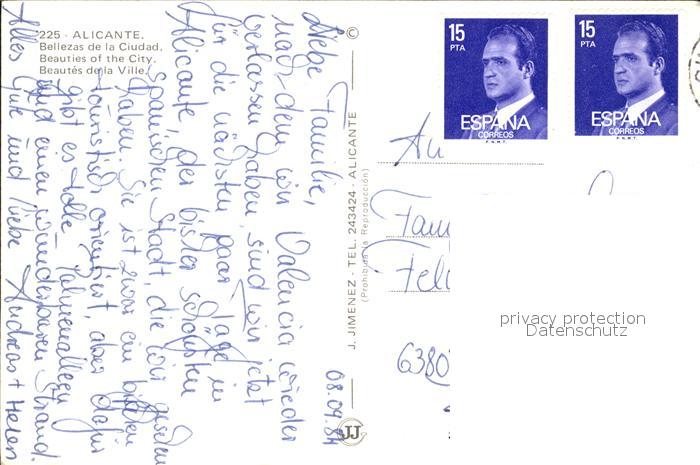 225 - ALICANTE.
Bellezas de la Ciudad.
Beauties of the City.
Beautés de la Ville.
08.09.84
Liebe Familie,
nachdem wir Valencia wieder
verlassen haben, sind wir jetzt
für die nächsten paar Tage in
Alicante, der bisher schönsten
spanischen Stadt, die wir gesehen
haben. Sie ist zwar ein bißchen
touristisch orientiert, aber dafür
gibt es tolle Palmenalleen
und einen wunderbaren Strand.
Alles Gute und liebe
Andreas + Helen
©
J. JIMENEZ - TEL. 243424 - ALICANTE
(Prohibida la Reproducción)
JJ
15
PTA
ESPAÑA
CORREOS
F.N.M.T.
15
PTA
ESPAÑA
CORREOS
F.N.M.T.
An
Fam
Fel
6380
privacy protection
Datenschutz